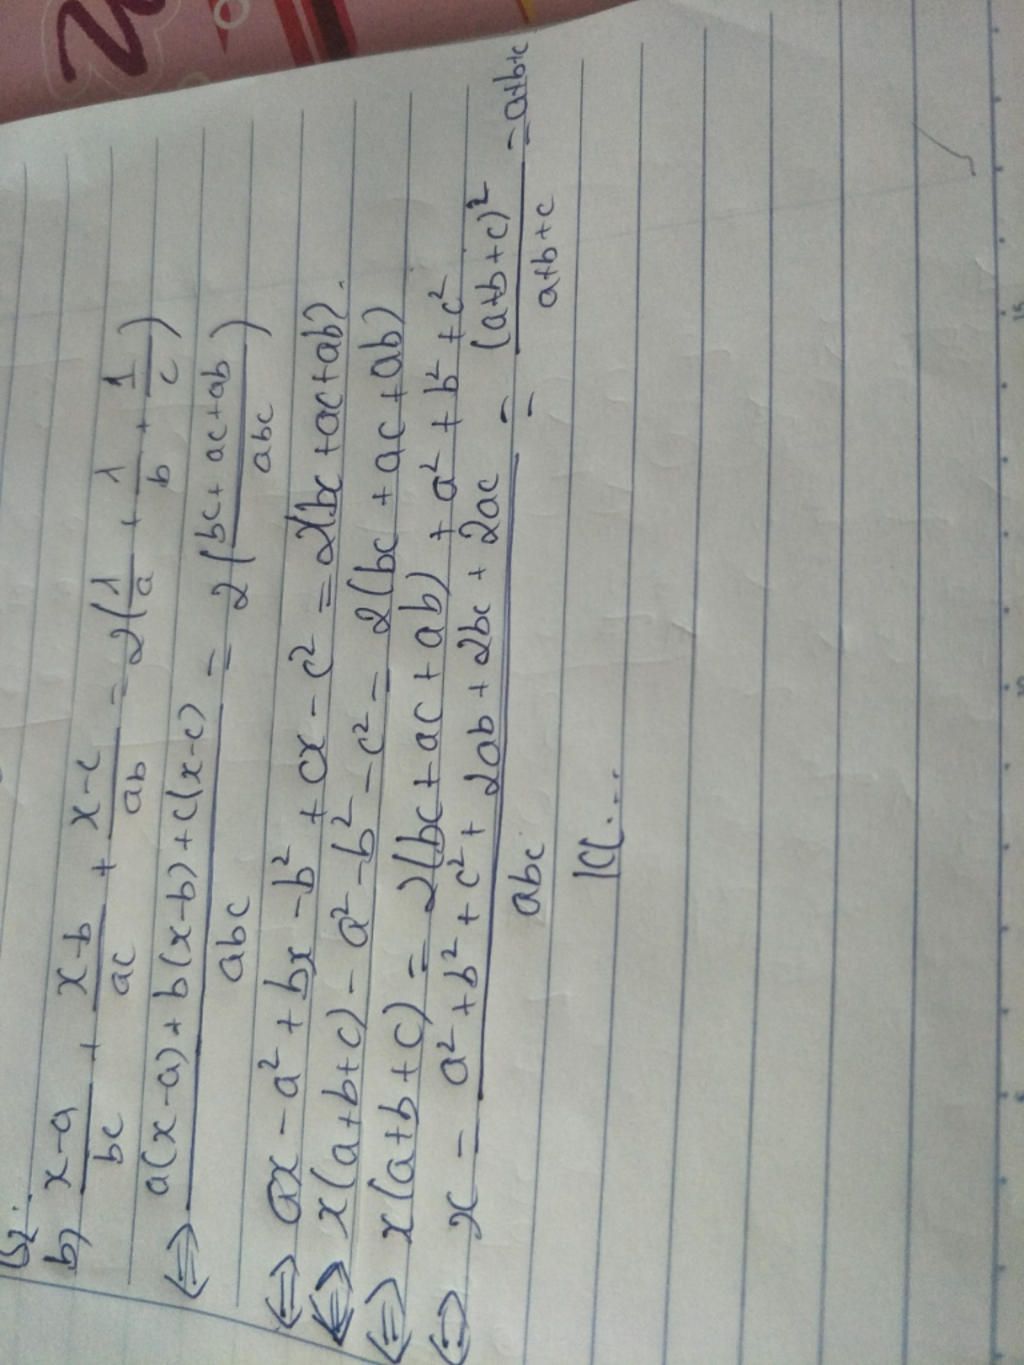 b) \frac{x-a}{bc} + \frac{x-b}{ac} + \frac{x-c}{ab} = 2(\frac{1}{a} + \frac{1}{b} + \frac{1}{c})
⇔ \frac{a(x-a)+b(x-b)+c(x-c)}{abc} = 2(\frac{bc+ac+ab}{abc})
⇔ ax - a² + bx - b² + cx - c² = 2(bc+ac+ab).
⇔ x(a+b+c) - a² - b² - c² = 2(bc+ac+ab)
⇔ x(a+b+c) = 2(bc+ac+ab) + a² + b² + c²
⇔ x = \frac{a²+b²+c²+2ab+2bc+2ac}{abc} = \frac{(a+b+c)²}{a+b+c} = a+b+c
KL...